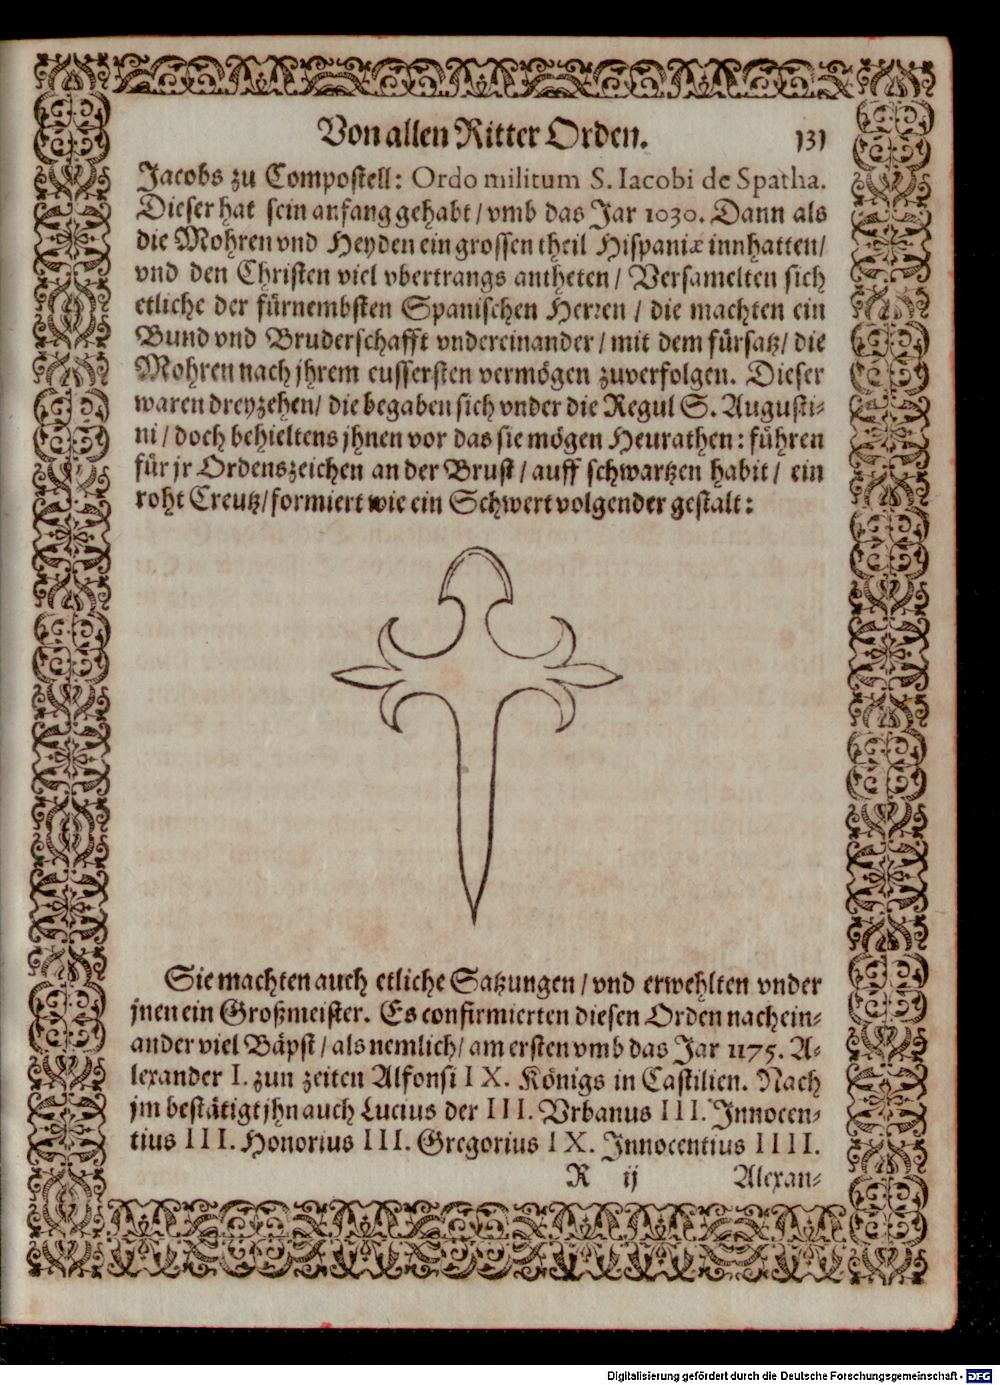 Von allen Ritter Orden. 131
Jacobs zu Compostell: Ordo militum S. Iacobi de Spatha.
Dieser hat sein anfang gehabt / vmb das Jar 1030. Dann als
die Mohren vnd Heyden ein grossen theil Hispaniæ innhatten /
vnd den Christen viel vbertrangs antheten / Versamelten sich
etliche der fürnembsten Spanischen Herren / die machten ein
Bund vnd Bruderschafft vndereinander / mit dem fürsatz / die
Mohren nach jhrem eussersten vermögen zuverfolgen. Dieser
waren dreyzehen / die begaben sich vnder die Regul S. Augusti-
ni / doch behieltens jhnen vor das sie mögen Heurathen: führen
für jr Ordenszeichen an der Brust / auff schwartzen habit / ein
roht Creutz / formiert wie ein Schwert volgender gestalt:
Sie machten auch etliche Satzungen / vnd erwehlten vnder
jnen ein Großmeister. Es confirmierten diesen Orden nachein-
ander viel Bäpst / als nemlich / am ersten vmb das Jar 1175. A-
lexander I. zun zeiten Alfonsi IX. Königs in Castilien. Nach
jm bestätigt jhn auch Lucius der III. Vrbanus III. Innocen-
tius III. Honorius III. Gregorius IX. Innocentius IIII.
R ij Alexan-
Digitalisierung gefördert durch die Deutsche Forschungsgemeinschaft - DFG